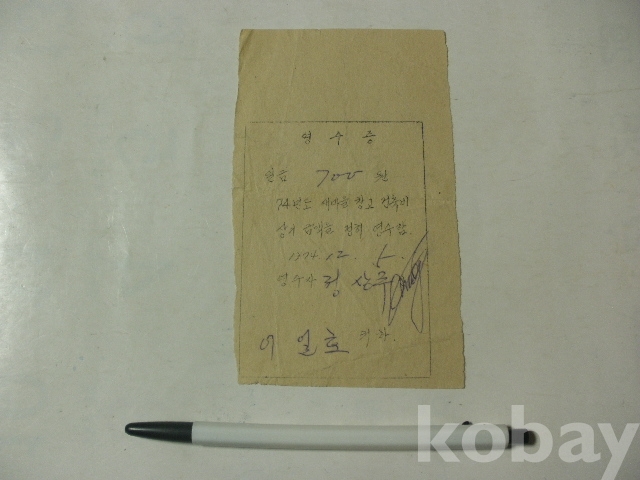 영 수 증
일금 700 원
74년도 새마을 창고 건축비
상기 금액을 정히 영수함.
1974. 12. 5.
영수자 정 산
이 일 호 귀하.
kobay